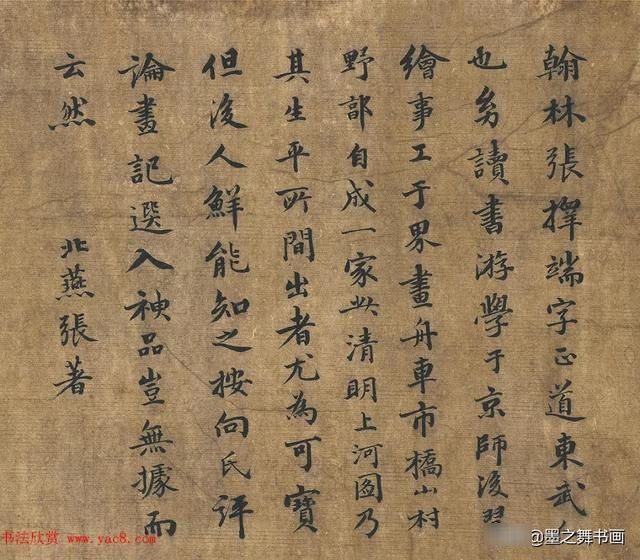 翰林張擇端字正道東武人
也幼讀書游學于京師後習
繪事工于界畫舟車市橋山村
野部自成一家此清明上河圖乃
其生平所間出者尤為可寶
但後人鮮能知之按向氏評
論畫記選入神品豈無據而
云然 北燕張著
书法欣赏 www.yac8.com
@墨之舞书画